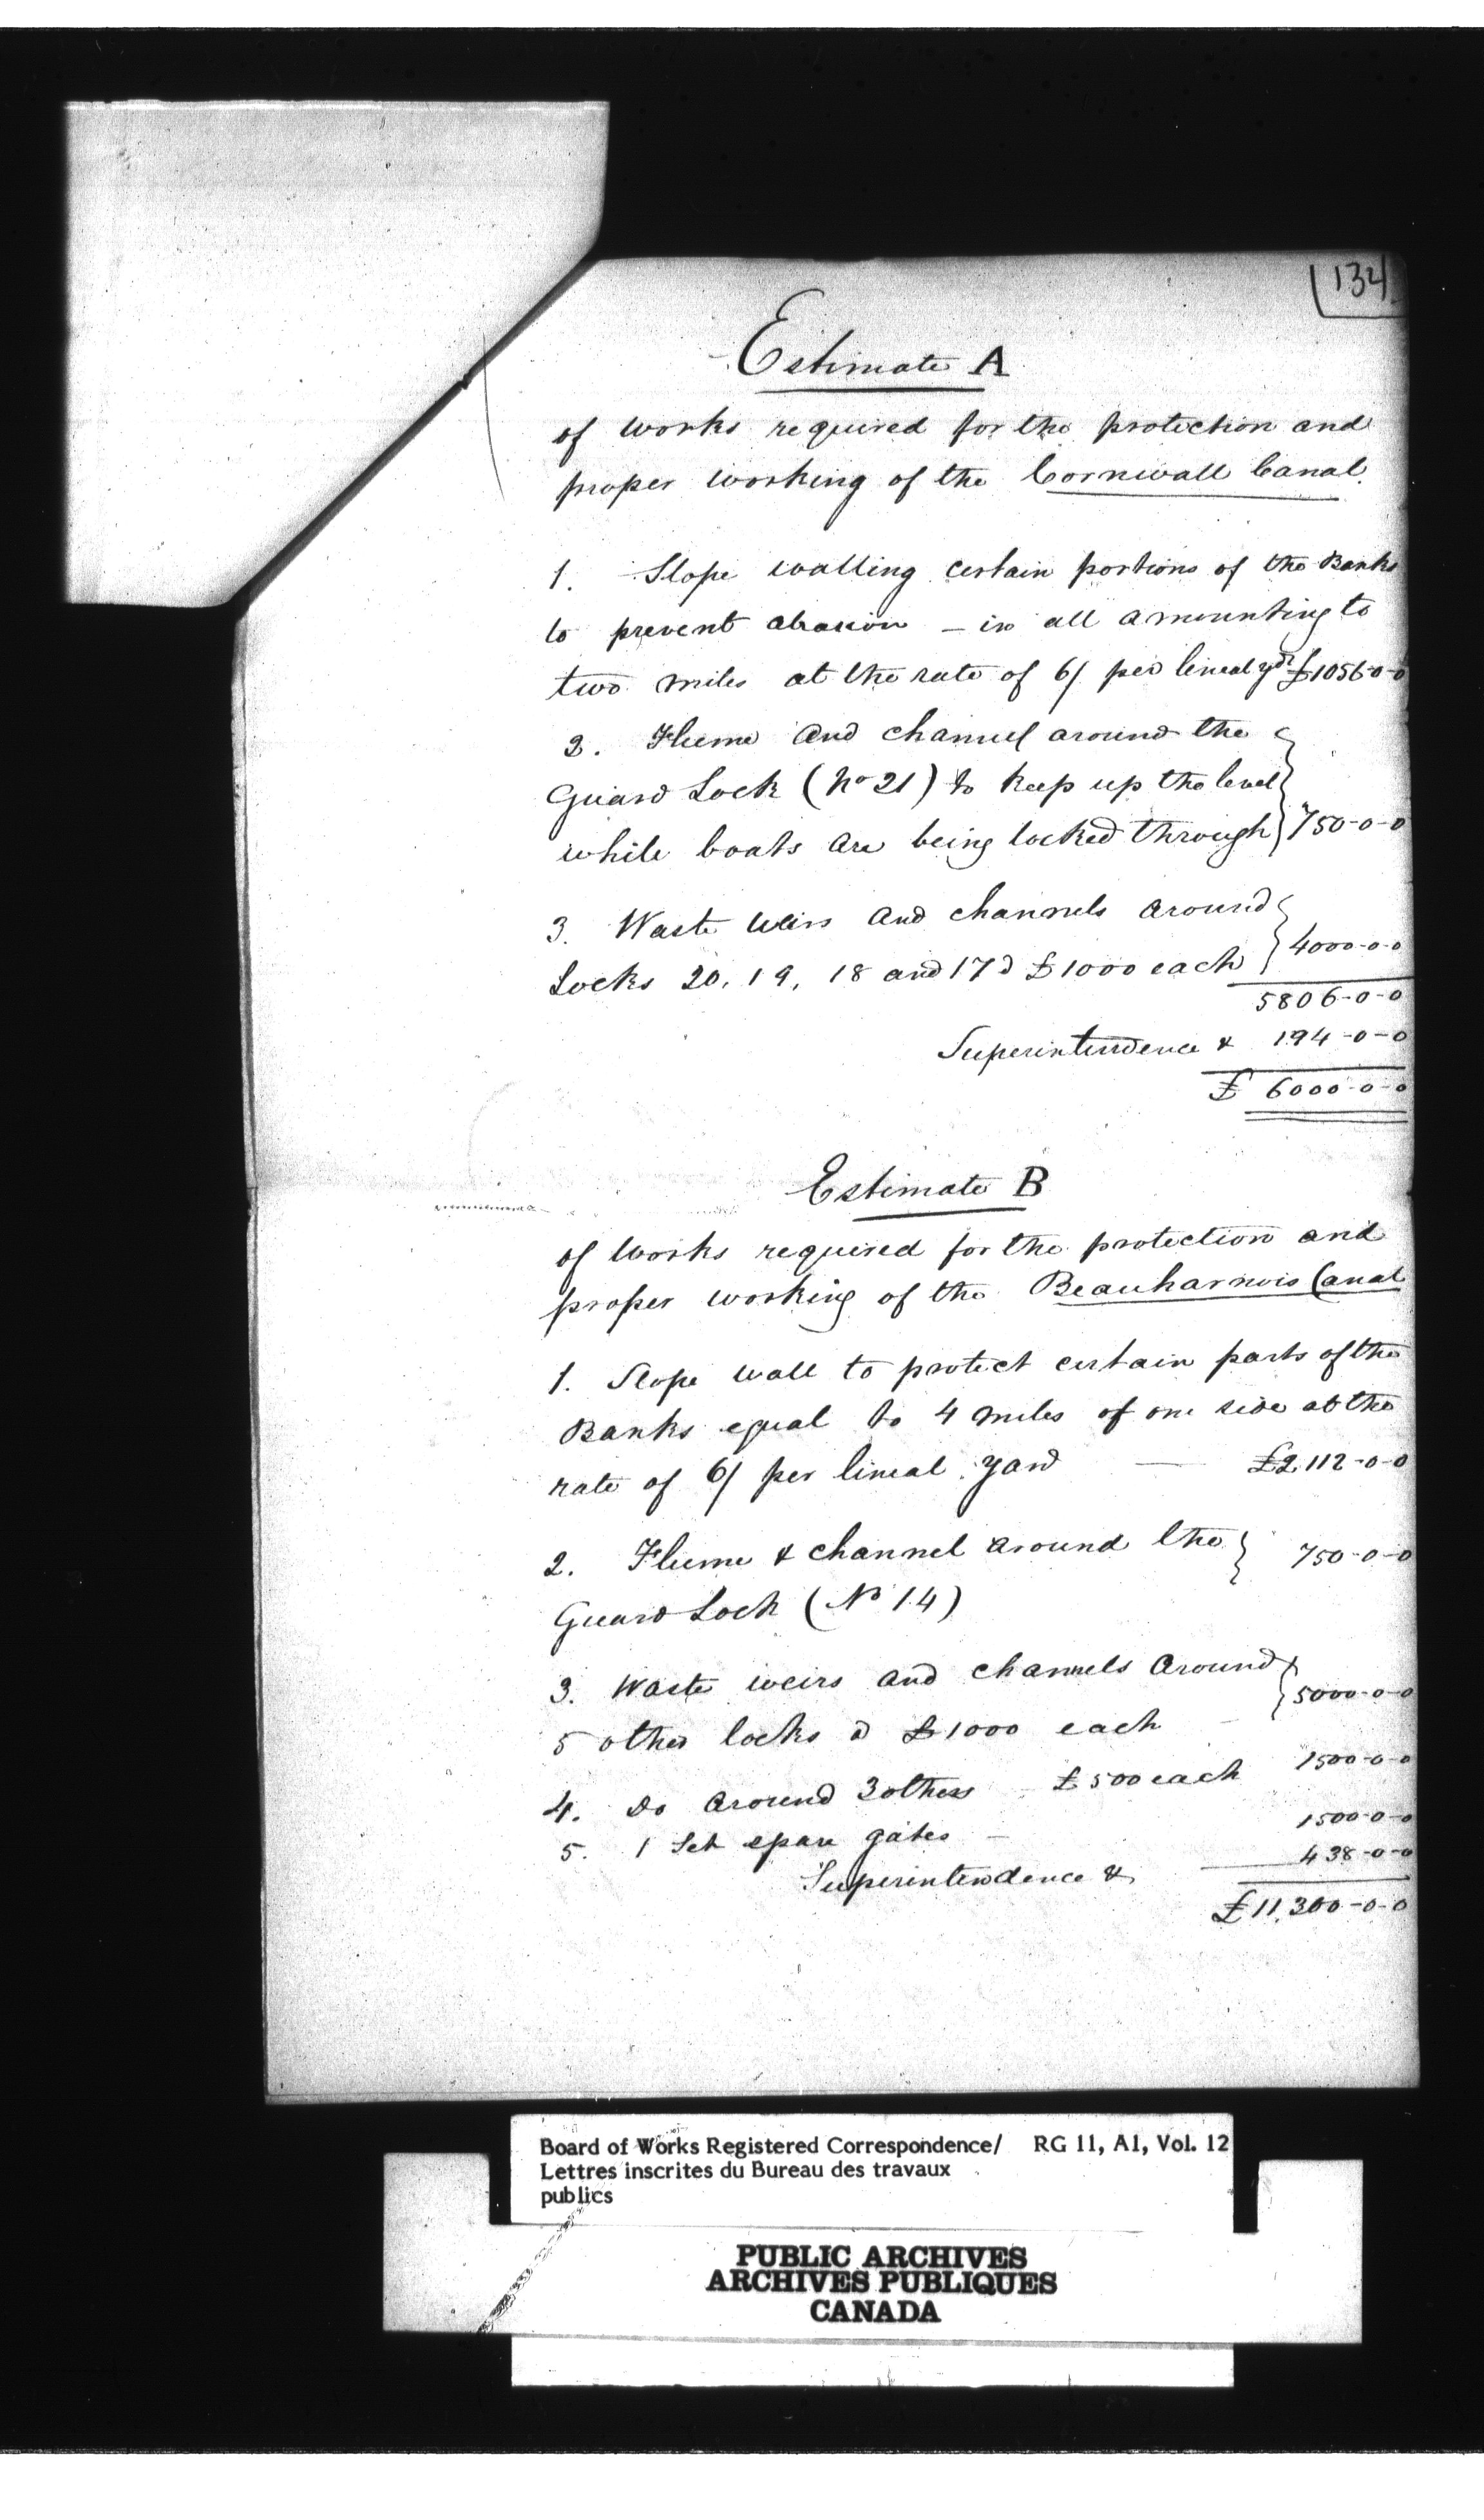 134
Estimate A
of works required for the protection and
proper working of the Cornwall Canal.
1. Slope walling certain portions of the Banks
to prevent abrasion – in all amounting to
two miles at the rate of 6/ per lineal yd £1056-0-0
2. Flume and channel around the
Guard Lock (No 21) to keep up the level
while boats are being locked through } 750-0-0
3. Waste weirs and channels around
Locks 20, 19, 18 and 17 @ £1000 each } 4000-0-0
5806-0-0
Superintendence & 194-0-0
£ 6000-0-0
Estimate B
of works required for the protection and
proper working of the Beauharnois Canal
1. Slope wall to protect certain parts of the
Banks equal to 4 miles of one side at the
rate of 6/ per lineal yard — £2112-0-0
2. Flume & channel around the } 750-0-0
Guard Lock (No 14)
3. Waste weirs and channels around } 5000-0-0
5 other locks @ £1000 each
4. Do around 3 others £500 each 1500-0-0
5. 1 Set spare gates – 1500-0-0
Superintendence & 438-0-0
£11,300-0-0
Board of Works Registered Correspondence/ RG 11, A1, Vol. 12
Lettres inscrites du Bureau des travaux
publics
PUBLIC ARCHIVES
ARCHIVES PUBLIQUES
CANADA